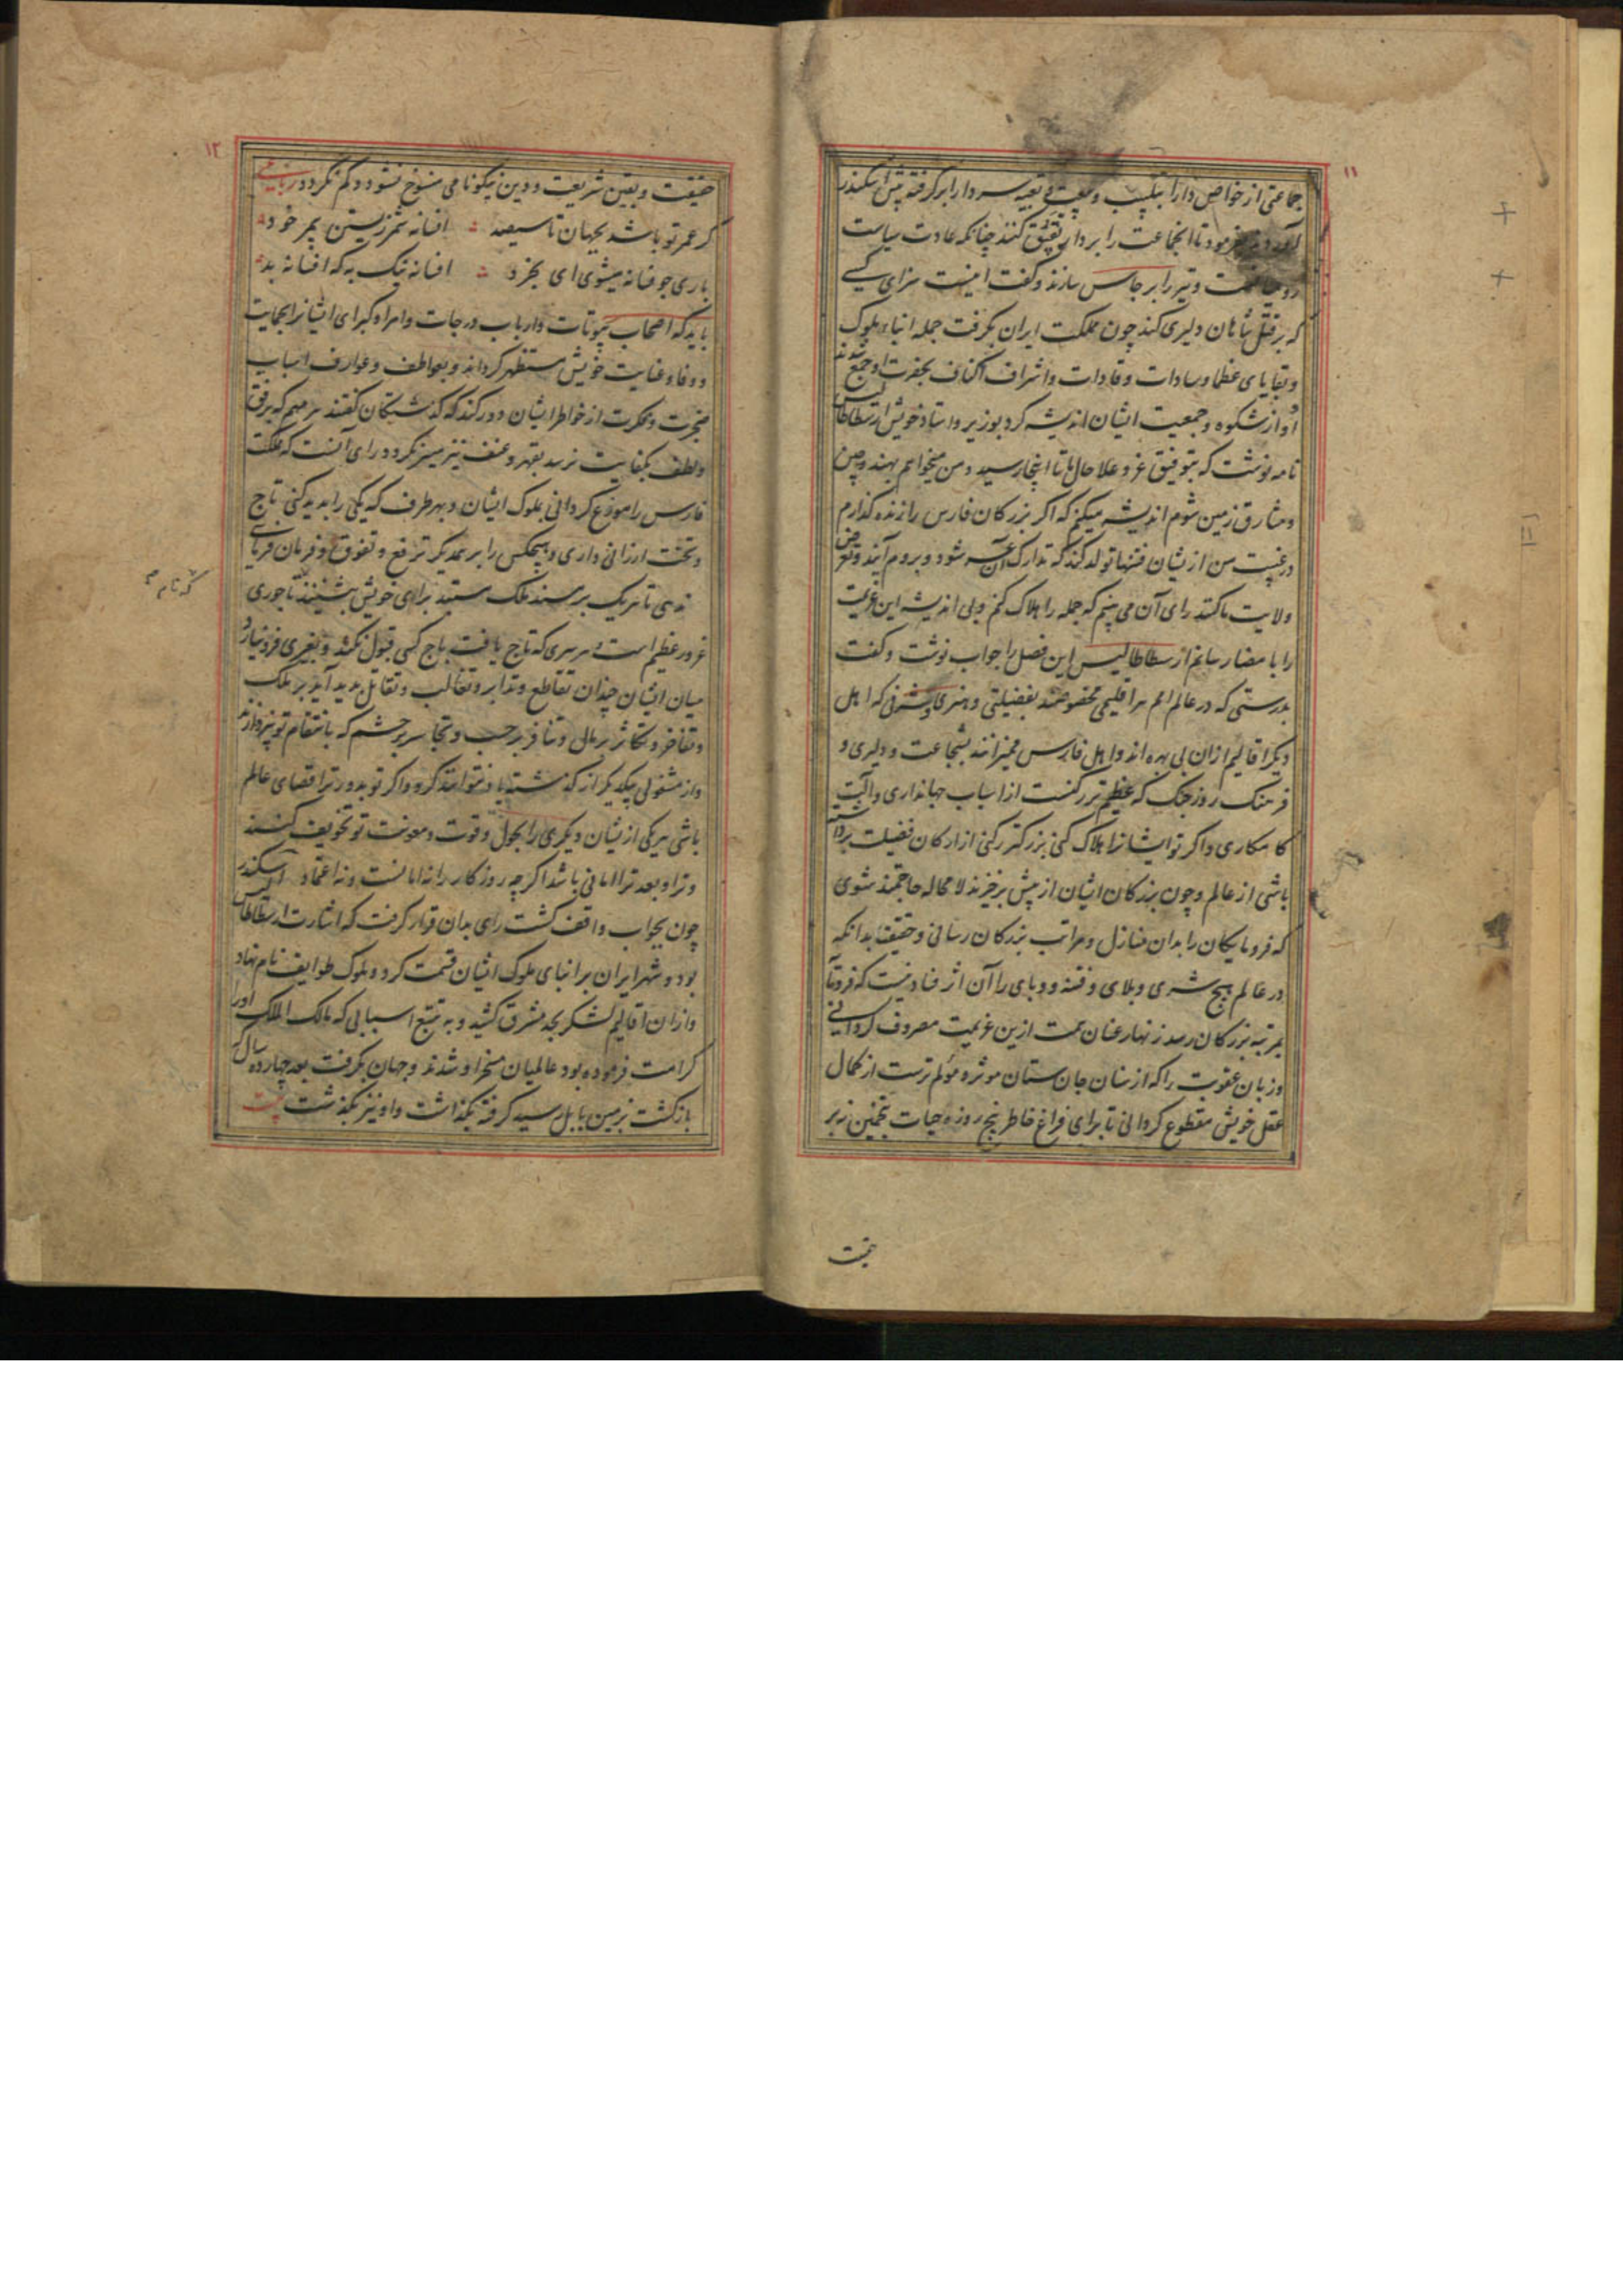 ۱۱
جماعتی از خواص دارا بتبییت و تعبیه سر دارا برگرفته پیش اسکندر
آوردند بفرمود تا انجماعت را بر دار تعلیق کنند چنانکه عادت سیاست
و تیر را برجاس سازند و گفت اینست سزای کسی
که بر قتل شاهان دلیری کند چون مملکت ایران بگرفت جمله ابناء ملوک
و بقایای عظما و سادات و قادات و اشراف اکناف بحضرت او جمع شدند
او از شکوه و جمعیت ایشان اندیشه کرد بوزیر و استاد خویش ارسطاطالیس
نامه نوشت که بتوفیق عز و علا حال ما تا اینجا رسید و من میخواهم بهند و چین
و مشارق زمین شوم اندیشه میکنم که اگر بزرکان فارس را زنده گذارم
در غیبت من ازیشان فتنها تولد کند که تدارک آن عسر شود و بروم آیند و تعرض
ولایت ما کنند رای آن می بینم که جمله را هلاک کنم و بی اندیشه این عزیمت
را بامضا رسانم ارسطاطالیس این فصل را جواب نوشت و گفت
بدرستی که در عالم امم هر اقلیمی مخصوصند بفضیلتی و هنری و شرفی که اهل
دیگر اقالیم ازان بی بهره اند و اهل فارس ممیزانند بشجاعت و دلیری و
فرهنک روز جنک که عظیم تر رکنست از اسباب جهانداری و آلت
کامکاری و اگر تو ایشانرا هلاک کنی بزرگتر رکنی از ارکان فضیلت برداشته
باشی از عالم و چون بزرکان ایشان از پیش برخیزند لامحاله حاجتمند شوی
که فرومایکان را بدان منازل و مراتب بزرکان رسانی و حقیقت بدانکه
در عالم هیچ شری و بلای و فتنه و وبای را آن اثر فساد نیست که فرومایه
بمرتبه بزرکان رسد زنهار عنان همت ازین عزیمت مصروف گردانی
و زبان عقوبت را که از سنان جان ستان موثر و مؤلم ترست از کمال
عقل خویش مقطوع گردانی تا برای فراغ خاطر پنج روزه حیات بتخمین نه بر
۱۲
حقیقت و یقین شریعت و دین نیکونامی منسوخ نشود و کم نگردد رباعی
گر عمر تو باشد بجهان تا سیصد افسانه شمر زیستن بی مر خود
باری جو فسانه میشوی ای بخرد افسانه نیک به که افسانه بد
باید که اصحاب بیوتات و ارباب درجات و امرا و کبرای ایشانرا بحمایت
و وفا و عنایت خویش مستظهر گرداند و بعواطف و عوارف اسباب
ضجرت و فکرت از خواطر ایشان دور کند که گذشتگان گفتند هر مهم که برفق
و لطف بکفایت نرسد بقهر و عنف نیز میسر نگردد رای آنست که مملکت
فارس را موزع گردانی بملوک ایشان و بهر طرف که یکی را پدید کنی تاج
و تخت ارزانی داری و هیچکس را بر همدیگر ترفع و تفوق و فرمان فرمائی
ندهی تا هر یک بر مسند ملک مستبد برای خویش بنشینند تاجوری
که نام
غرور عظیم است و هر سری که تاج یافت باج کسی قبول نکند و بغیری فرو نیارد
میان ایشان چندان تقاطع و تدابر و تغالب و تقاتل بدید آید بر ملک
و تفاخر و تکاثر بر مال و تنافر بر حسب و تجاسر بر حشم که بانتقام تو نپردازند
و از مشغولی بیکدیگر از گذشته یاد نتوانند کرد و اگر تو بدورتر اقصای عالم
باشی هر یکی ازیشان دیگری را بحول و قوت و معونت تو تخویف کنند
و ترا و بعد ترا امانی باشد اگرچه روزکار را نه امانست و نه اعتماد اسکندر
چون بجواب واقف گشت رای بدان قرار گرفت که اشارت ارسطاطالیس
بود و شهر ایران بر ابنای ملوک ایشان قسمت کرد و ملوک طوایف نام نهاد
و ازان اقالیم لشکر بحد مشرق کشید و به تتبع اسبابی که مالک الملک او را
کرامت فرموده بود عالمیان مسخر او شدند و جهان بگرفت بعد چهارده سال که
بازگشت بزمین بابل رسید گرفته بگذاشت و او نیز بگذشت بیت